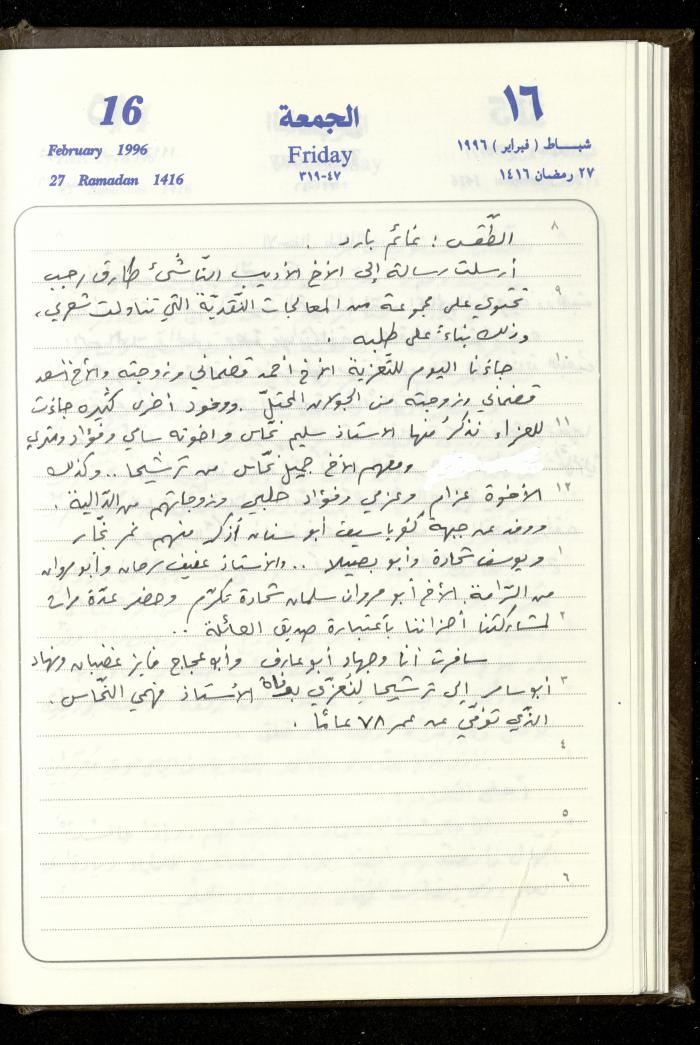 16
الجمعة
١٦
February 1996
Friday
شباط ( فبراير ) ١٩٩٦
27 Ramadan 1416
٤٧-٣١٩
٢٧ رمضان ١٤١٦
٨
الطّقس : غائم بارد .
أرسلت رسالة إلى الأخ الأديب النّاشئ طارق رجب
٩
تحتوي على مجموعة من المعالجات النّقديّة التي تناولت شعري،،
وذلك بناءً على طلبه .
١٠
جاءنا اليوم للتّعزية الأخ أحمد قضماني وزوجته والأخ أسعد
قضماني وزوجته من الجولان المحتلّ . ووفود أخرى كثيرة جاءت
١١
للعزاء نذكر منها الاستاذ سليم نحّاس واخوته سامي وفؤاد
ومعهم الأخ جميل نحّاس من ترشيحا .. وكذلك
١٢
الأخوة عزام وعزمي وفؤاد حلبي وزوجاتهم من الدّالية .
ووفد عن جبهة كفرياسيف أبو سنان أذكر منهم نمر نجّار
١
ويوسف شحادة وأبو .. والاستاذ عفيف سرحان وأبو مروان
من الرّامة الأخ أبو مروان سلمان شحادة تكرّم وحضر عدّة مرات
٢
لمشاركتنا أحزاننا باعتباره صديق العائلة ..
سافرت أنا وجهاد أبو عارف وأبو عجاج فايز غضبان ونهاد
٣
أبو سامر إلى ترشيحا لنُعزّي بوفاة الأستاذ فهمي النّحّاس .
الذّي توفّي عن عمر ٧٨ عامًا .
٤
٥
٦